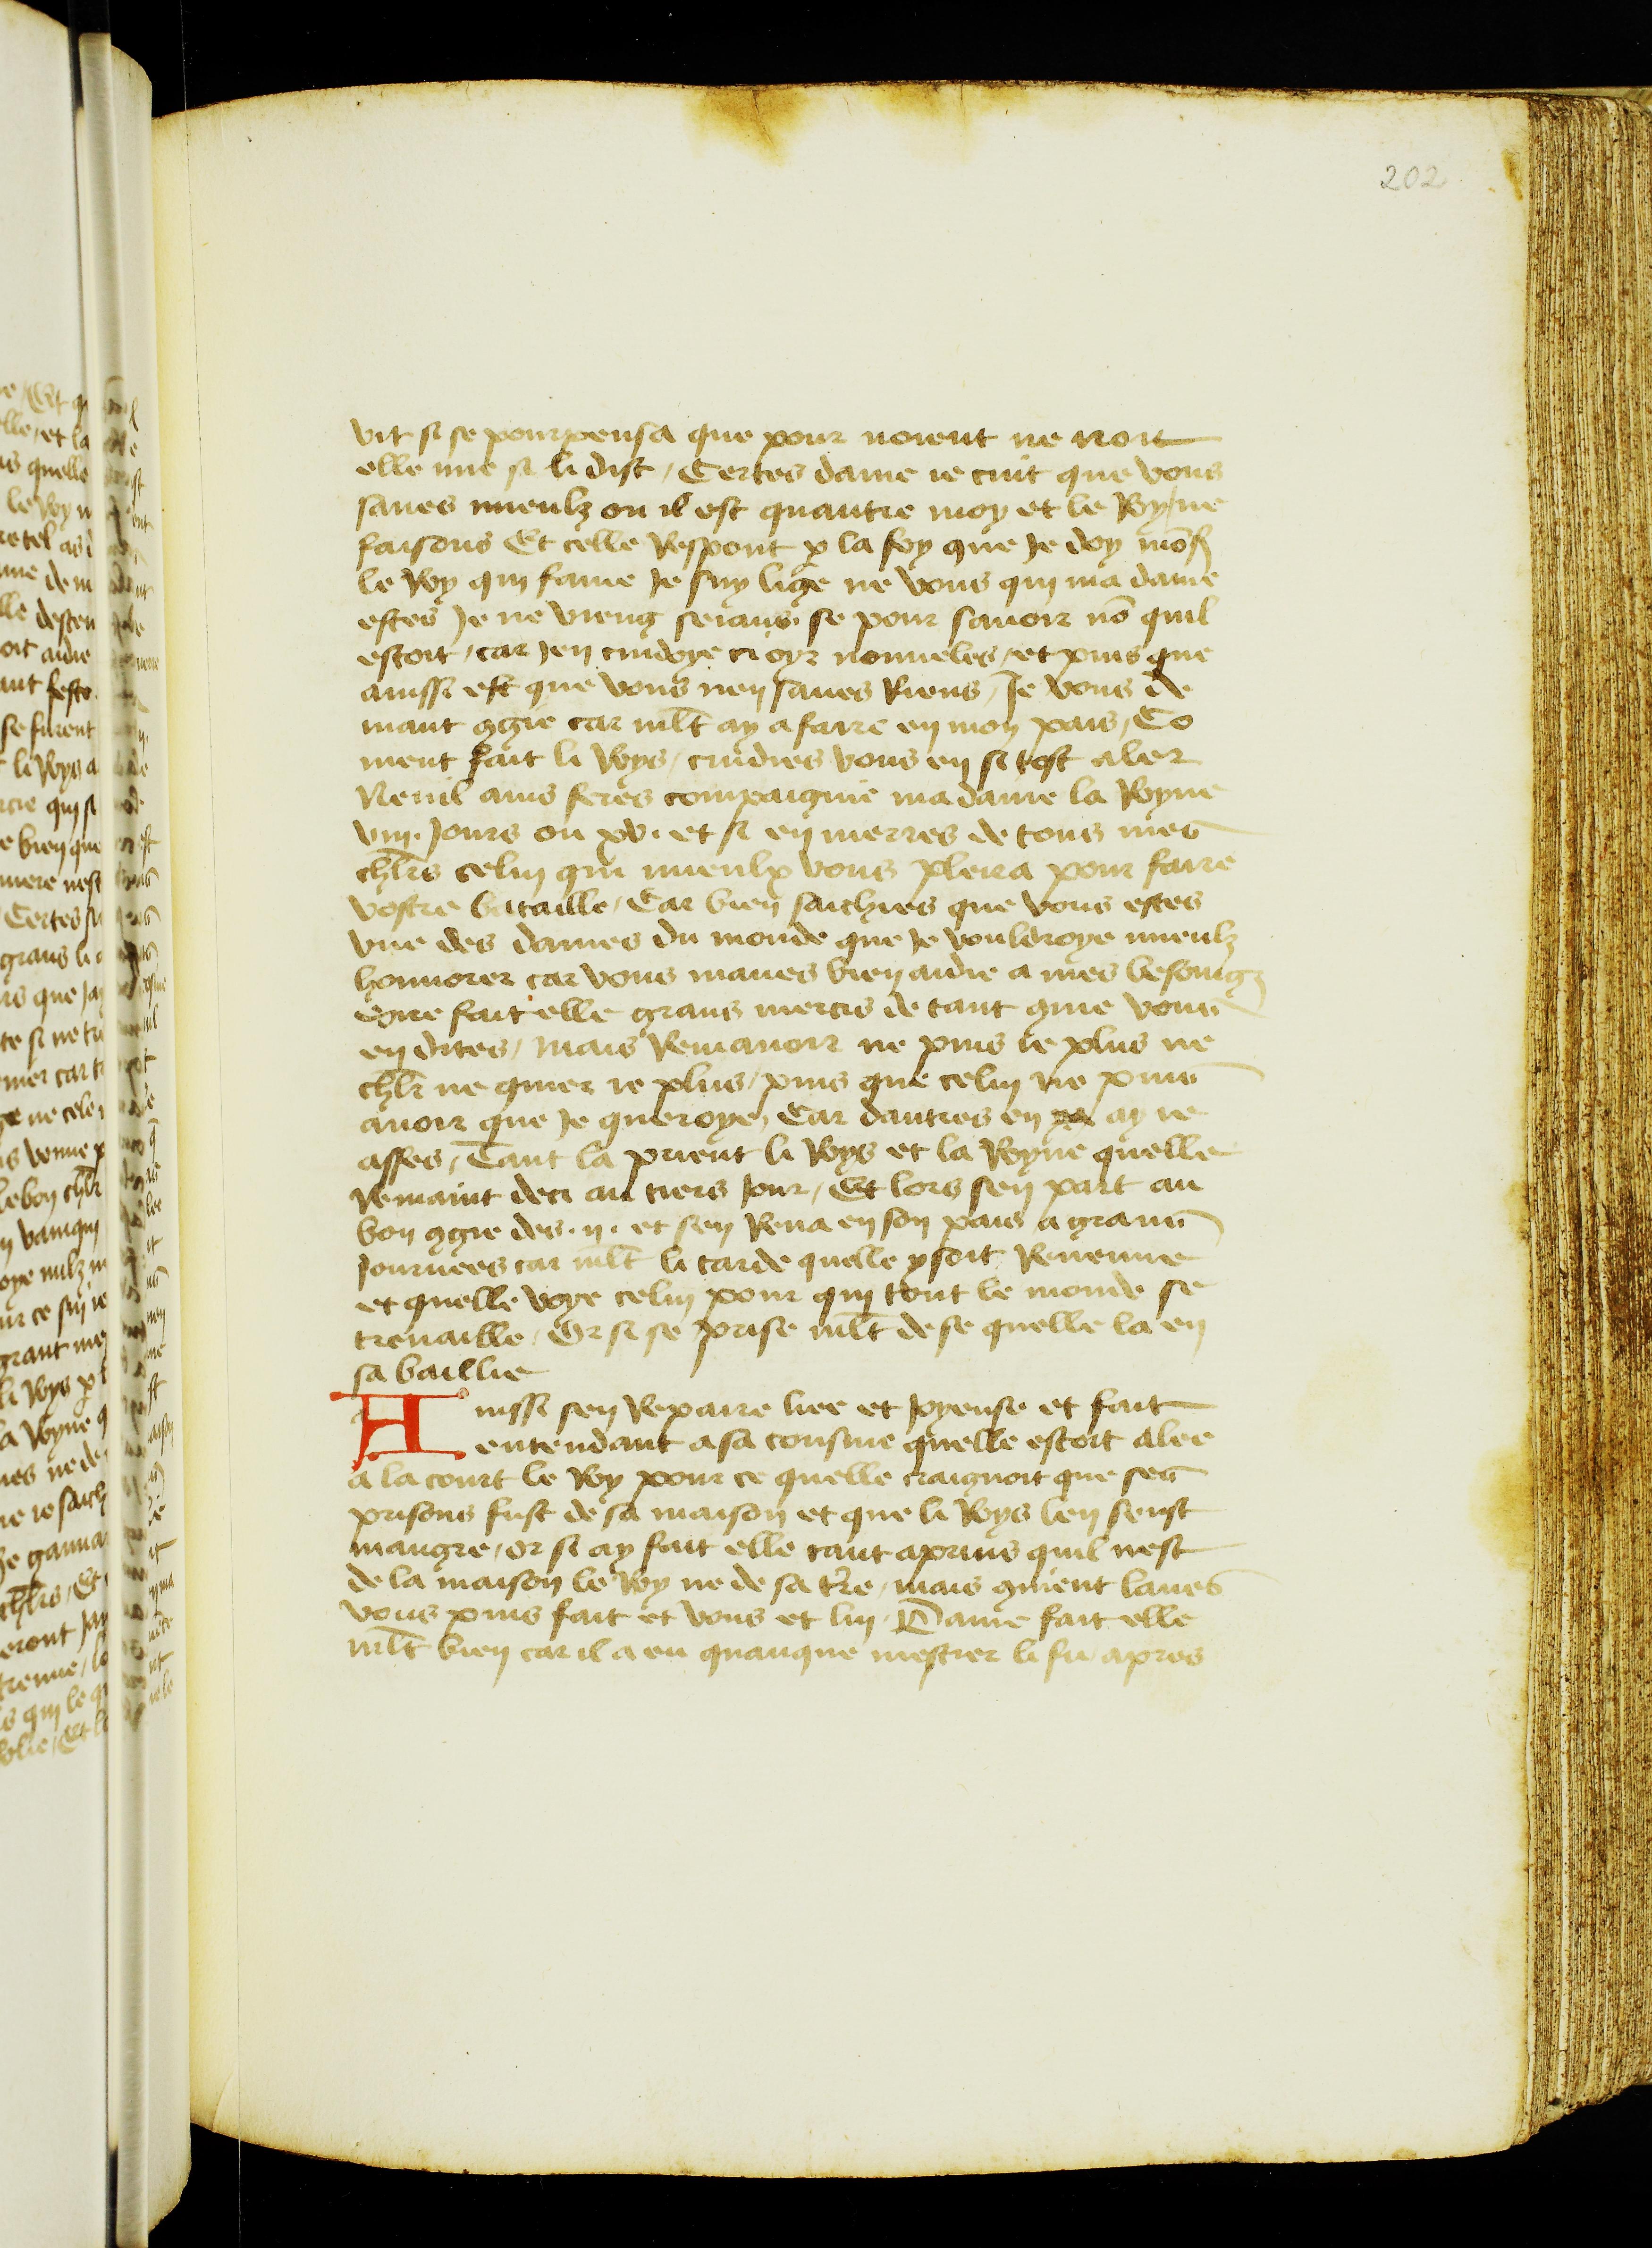 202
vit si se pourpensa que pour noient ne rioit
elle mie si li dist / Certes dame ie cuit que vous
saues mieulz ou il est quautre moy et le Roy ne
faisons Et celle Respont p la foy que Je doy mōs
le Roy qui fame Je suy lige ne vous qui ma dame
estes Je ne vieng seians se pour sauoir nō quil
estoit / car Jen cuidoye ci oyr nouueles / et puis que
ainssi est que vous nen saues Riens / Je vous de
mant ꝯgie car ml̄t ay a faire en mon pais / Co
ment fait li Roys / cuidies vous en si tost aler
Nenil ains feres compaignie ma dame la Royne
viij. Jours ou xv. et si en merres de tous mes
chl̄rs celuy qui mieulx vous pleira pour faire
vostre bataille / Car bien saichies que vous estes
vne des dames du monde que Je vouldroye mieulz
honnorer car vous maues bien aidie a mes besoingz
Sire fait elle grans mercis de tant que vous
en dites / mais Remanoir ne puis ie plus ne
chl̄r ne quier ie plus / puis que celuy ne puis
auoir que Je queroye / Car dautres en ay ie
asses / Tant la prient li Roys et la Royne quelle
Remaint deci au tiers Jour / Et lors sen part au
bon ꝯgie des .ij. et sen Reua en son pais a grans
Journees car ml̄t li tarde quelle y soit Reuenue
et quelle voye celuy pour qui tout le monde se
treuaille / Or si se prise ml̄t de se quelle la en
sa baillie
Ainssi sen Repaire liee et Joyeuse et fait
entendant a sa cousine quelle estoit alee
a la court le Roy pour ce quelle craignoit que ses
prisons fust de sa maison et que li Roys len seust
maugre / or si ay fait elle tant apruis quil nest
de la maison le Roy ne de sa tr̄re / mais ꝯment laues
vous puis fait et vous et luy / Dame fait elle
ml̄t bien car il a eu quanque mestier li fu / apres